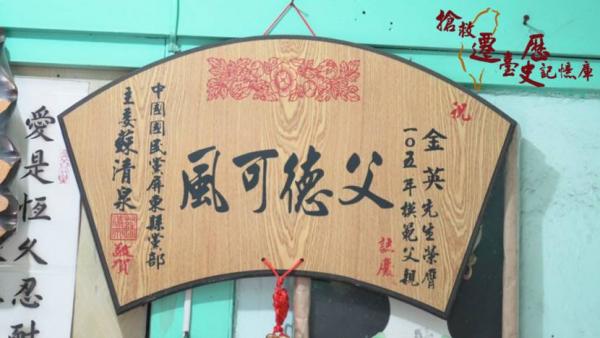 搶救遷臺歷史記憶庫
祝
金英先生榮膺
一〇五年模範父親
誌慶
父德可風
中國國民黨屏東縣黨部
主委蘇清泉 敬賀
愛是恆久忍耐